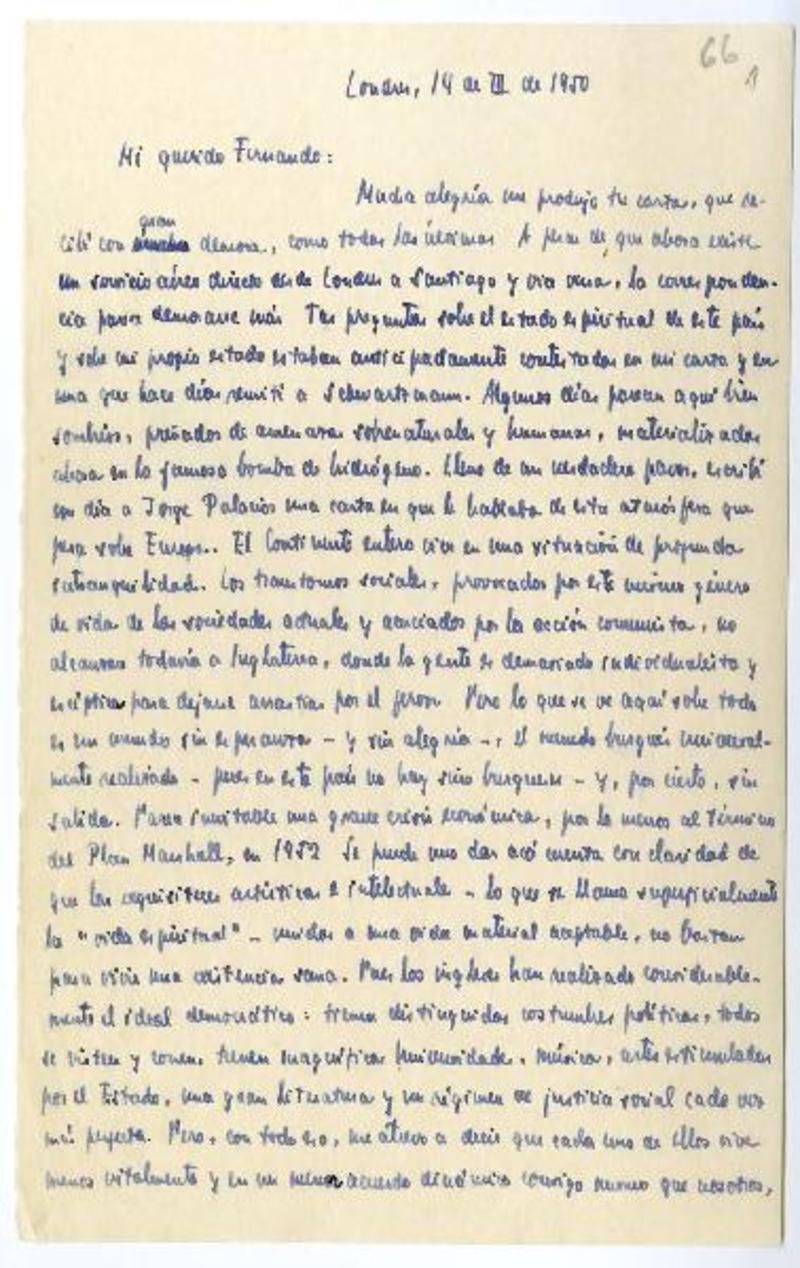 66
1
Londres, 14 de III de 1950
Mi querido Fernando:
Mucha alegría me produjo tu carta, que re-
gran
cibí con mucha demora, como todas las últimas A pesar de que ahora existe
un servicio aéreo directo desde Londres a Santiago y vice versa, la corresponden-
cia parece demorarse más Tus preguntas sobre el estado espiritual de este país
y sobre mi propio estado estaban anticipadamente contestadas en mi carta y en
una que hace días remití a Schwartzmann. Algunos días parecen aquí bien
sombríos, preñados de amenazas sobrenaturales y humanas, materializadas
ahora en la famosa bomba de hidrógeno. Lleno de un verdadero pavor, escribí
un día a Jorge Palacios una carta en que le hablaba de esta atmósfera que
pesa sobre Europa. El Continente entero vive en una situación de profunda
intranquilidad. Los trastornos sociales, provocados por este mismo género
de vida de las sociedades actuales y auspiciados por la acción comunista, no
alcanzan todavía a Inglaterra, donde la gente es demasiado individualista y
escéptica para dejarse arrastrar por el fervor Pero lo que se ve aquí sobre todo
es un mundo sin esperanza - y sin alegría -, el mundo burgués universal-
mente realizado - pues en este país no hay sino burgueses - y, por cierto, sin
salida. Parece inevitable una grave crisis económica, por lo menos al término
del Plan Marshall, en 1952 Se puede uno dar acá cuenta con claridad de
que las exquisiteces artísticas e intelectuales - lo que se llama superficialmente
la "vida espiritual" - unidas a una vida material aceptable, no bastan
para vivir una existencia sana. Pues los ingleses han realizado considerable-
mente el ideal democrático: tienen distinguidas costumbres políticas, todos
se visten y comen, tienen magníficas universidades, música, artes estimuladas
por el Estado, una gran literatura y un régimen de justicia social cada vez
más perfecta. Pero, con todo eso, me atrevo a decir que cada uno de ellos vive
menos vitalmente y en un menor acuerdo dinámico consigo mismo que nosotros,